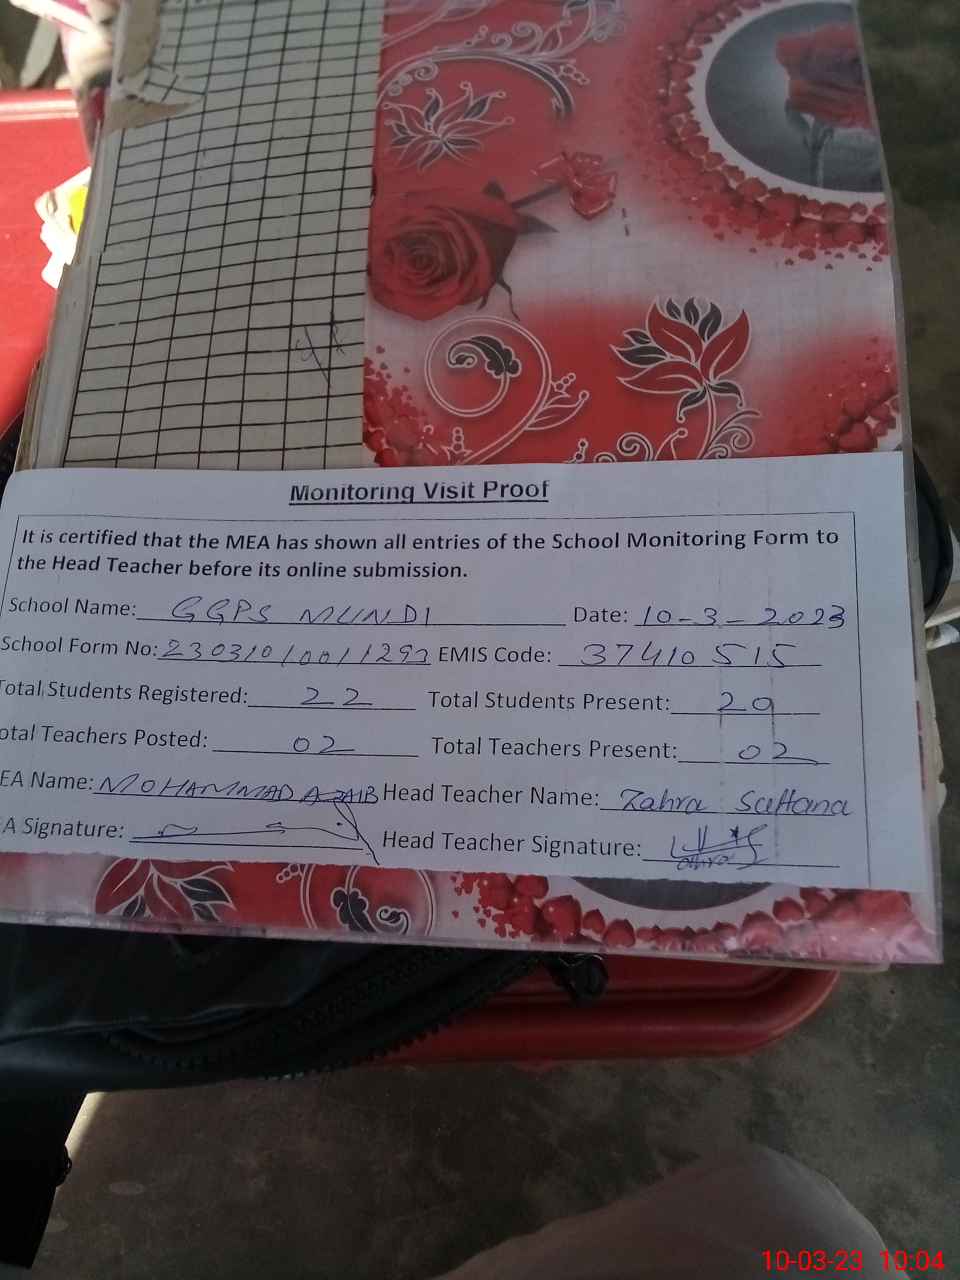 Monitoring Visit Proof
It is certified that the MEA has shown all entries of the School Monitoring Form to
the Head Teacher before its online submission.
School Name: GGPS MUNDI Date: 10-3-2023
School Form No: EMIS Code: 37410515
otal Students Registered: 22 Total Students Present: 20
otal Teachers Posted: 02 Total Teachers Present: 02
EA Name: MOHAMMAD AZAIB Head Teacher Name: Zahra Sultana
A Signature: Head Teacher Signature:
10-03-23 10:04